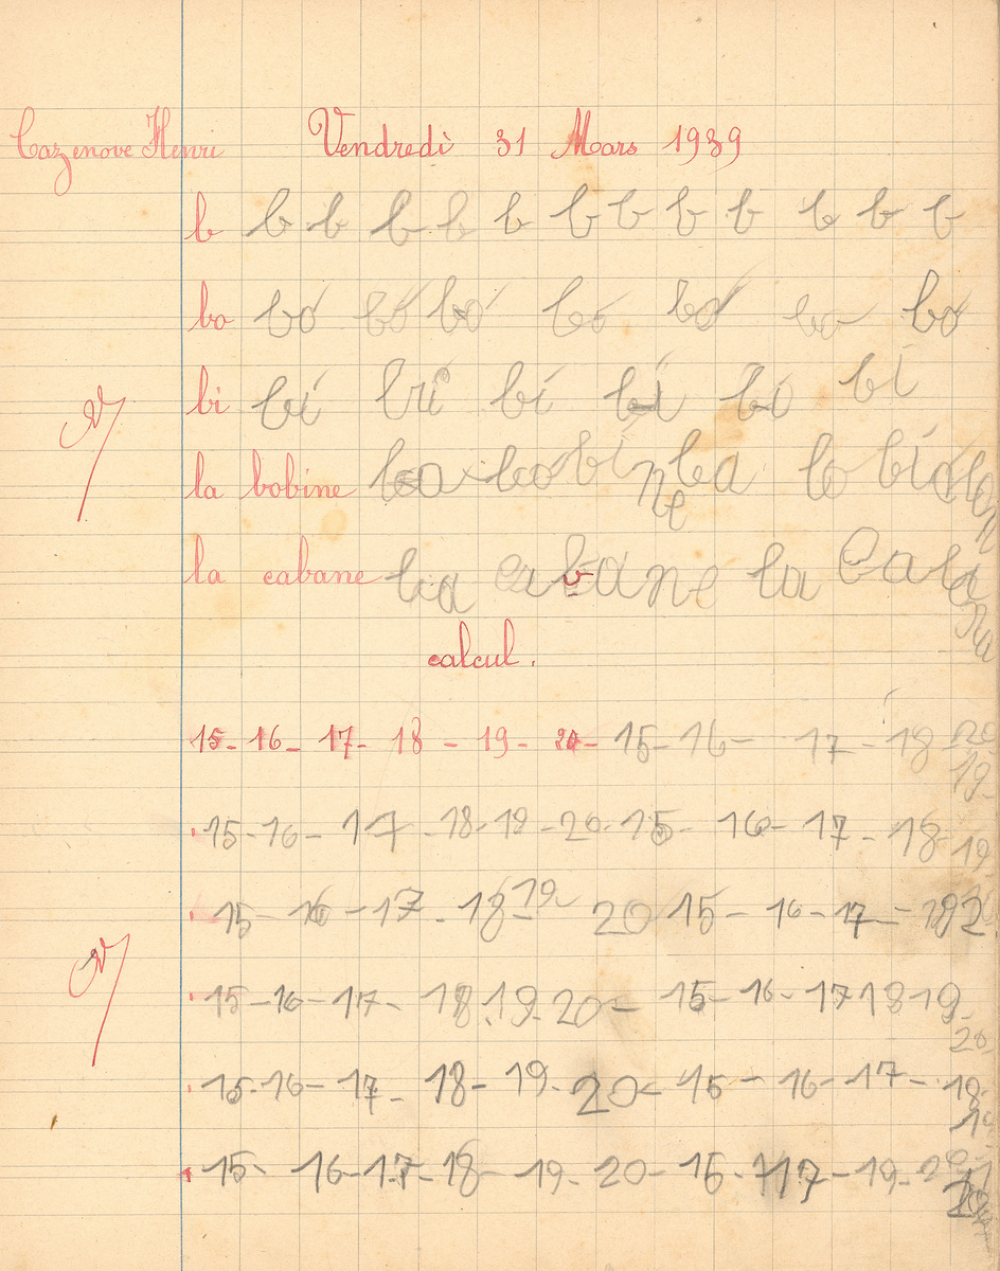 Cazenove Henri Vendredi 31 Mars 1939
b b b b b b b b b b b b b
bo bo bo bo bo bo bo bo
bi bi bi bi bi bi bi
la bobine la bobine la bo
la cabane la cabane la caba
calcul.
15- 16- 17- 18 - 19- 20- 15- 16- 17- 18 20
19-
15-16- 17-18-19-20-15- 16- 17-18-19
15- 16-17-18-19- 20 15- 16-17-
15-16-17- 18.19.20- 15-16-17 18 19-
20
15-16- 17- 18- 19-20- 15- 16-17-18-
19
15- 16-17-18- 19-20-15- 17-19-20